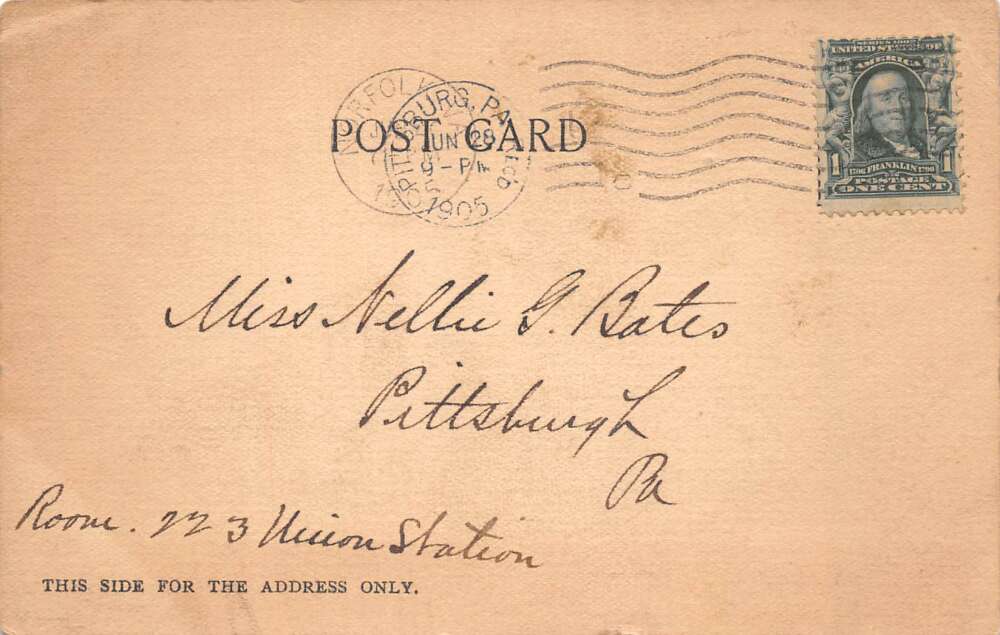 SERIES 1902
UNITED STATES OF
AMERICA
1706 FRANKLIN 1790
1 POSTAGE 1
ONE CENT
NORFOLK
PITTSBURG, PA.
JUN 28
9-PM
1905
REC'D
POST CARD
Miss Nellie G. Bates
Pittsburgh
Pa
Room. 223 Union Station
THIS SIDE FOR THE ADDRESS ONLY.